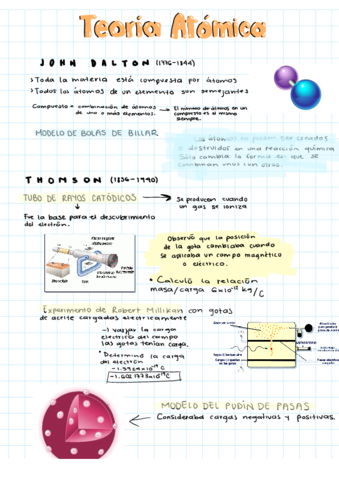 Teoría Atómica
JOHN DALTON (1776-1844)
> Toda la materia está compuesta por átomos
> Todos los átomos de un elemento son semejantes
Compuesto = combinación de átomos de uno o más elementos.
El número de átomos en un compuesto es el mismo siempre.
MODELO DE BOLAS DE BILLAR
Los átomos no pueden ser creados
o destruidos en una reacción química
Sólo cambia la forma en que se
combinan unos con otros.
THOMSON (1856-1940)
TUBO DE RAYOS CATÓDICOS
Se producen cuando
un gas se ioniza
Fue la base para el descubrimiento
del electrón.
Observó que la posición
de la gota cambiaba cuando
se aplicaba un campo magnético
o eléctrico.
• Calculó la relación
masa/carga
Experimento de Robert Millikan con gotas
de aceite cargadas eléctricamente
→ variar la carga
eléctrica del campo
las gotas tenían carga.
• Determinó la carga
del electrón
MODELO DEL PUDIN DE PASAS
Consideraba cargas negativas y positivas.